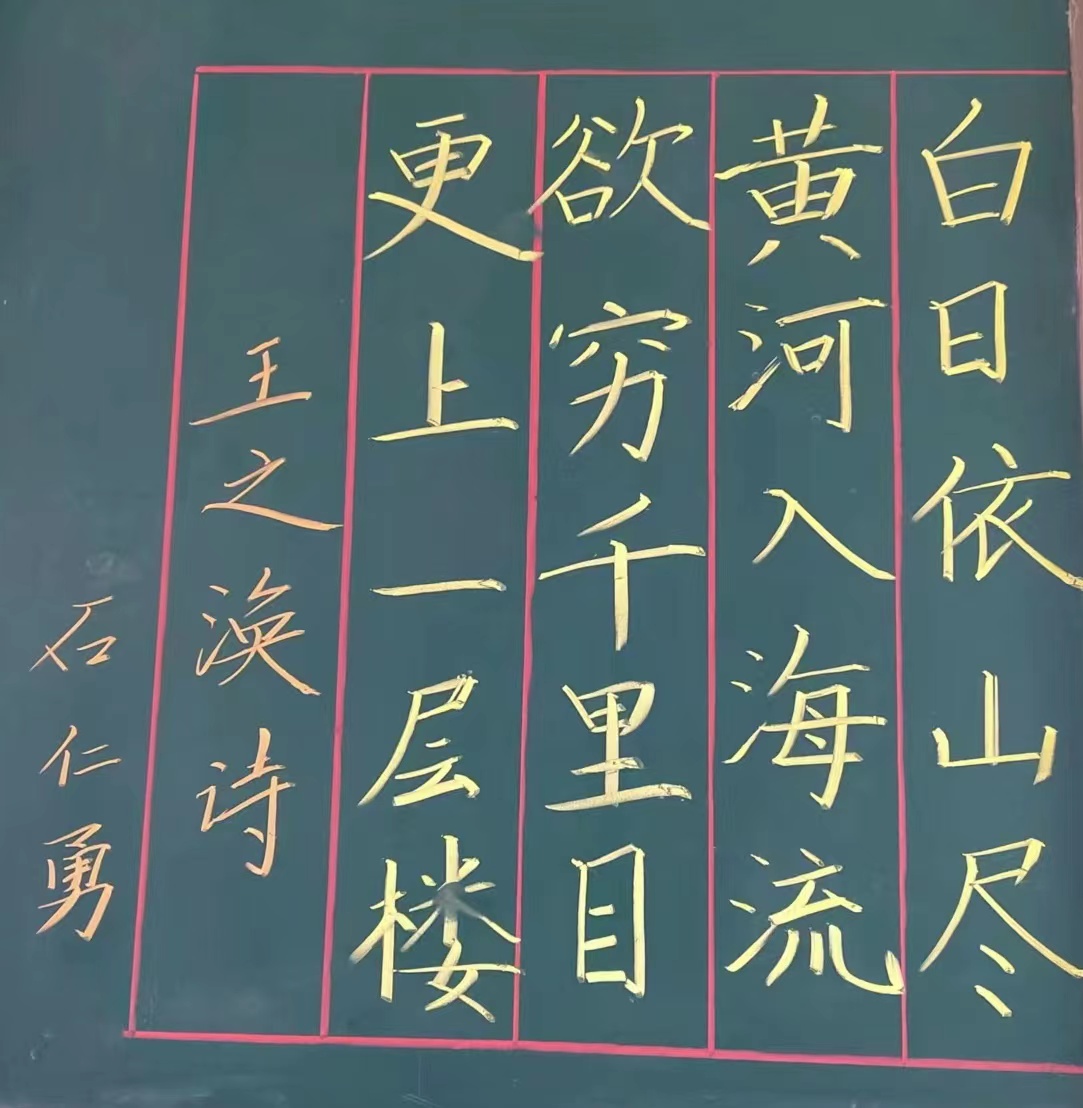 白日依山尽
黄河入海流
欲穷千里目
更上一层楼
王之涣诗
石仁勇